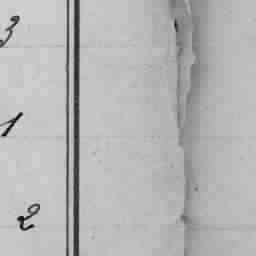 3
1
2